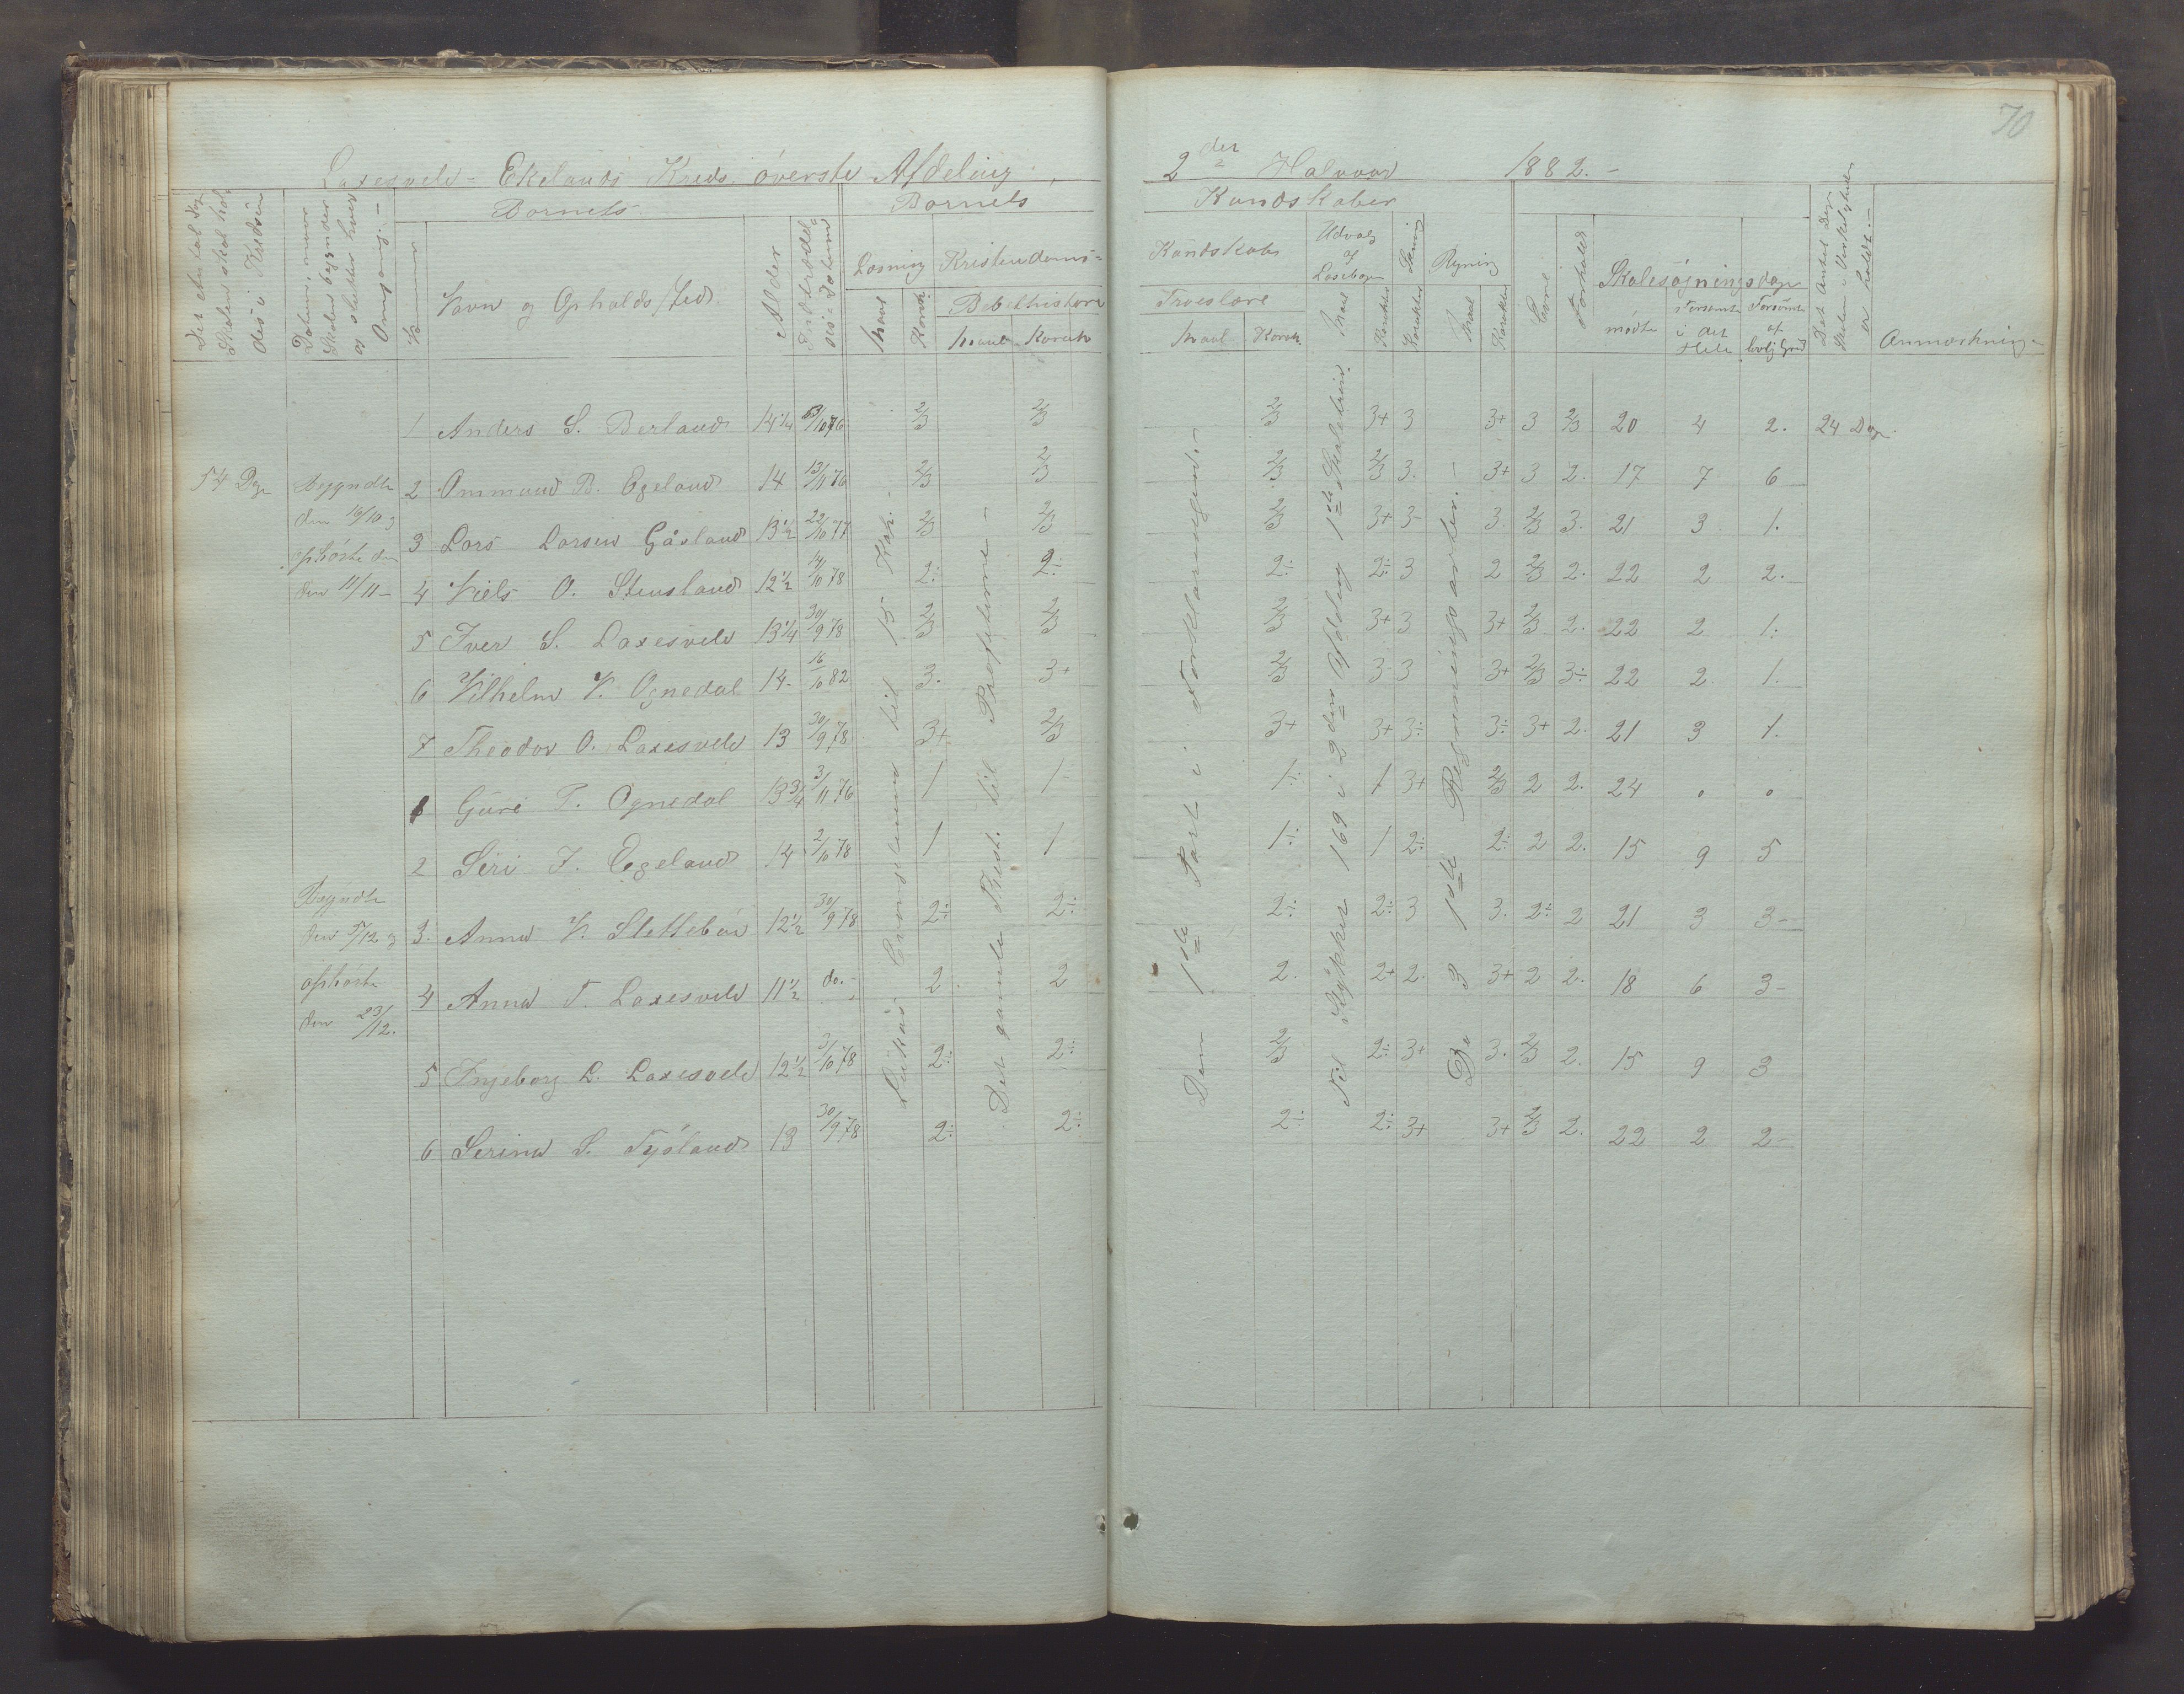 70
Laxesveld - Ekelands Kreds øverste Afdeling
2den Halvaar 1882.-
Det Antal Dage Skolen skal holdes i Kredsen
Datum, naar Skolen begynder og slutter hver Omgang.-
Barnets
Nummer
Navn og Opholds Sted
Alder
Indtrædelses-Datum
Barnets
Læsning
Maal
Karak.
Kristendoms-
Bibelhistorie
Maal
Karak
Kundskaber
Kundskab
Troeslære
Maal
Karak.
Udvalg af Læsebogen
Maal
Karakter
Skrivning
Karakter
Regning
Maal
Karakter
Evne
Forhold
Skolesøgningsdage
mødte
Forsømte i det Hele
Forsømte af lovlig Grund
Det Antal Dage Skolen i Virkeligheden er holdt.-
Anmærkning.-
1 Anders S. Berland 14 1/4 /10 76 2/3 2/3 2/3 3+ 3 3+ 3 2/3 20 4 2. 24 Dage
54 Dage
Begyndte den 16/10 og ophørte den den 11/11 -
2 Ommund B. Egeland 14 13/11 76 2/3 2/3 2/3 2/3 3. 3+ 3 2. 17 7 6
3 Lars Larsen Gåsland 13 1/2 22/10 77 2/3 2/3 2/3 3+ 3- 3 2/3 3. 21 3 1.
4 Niels O. Stensland 12 1/2 14/10 78 2÷ 2÷ 2÷ 2÷ 3 2 2/3 2. 22 2 2.
5 Iver S. Laxesveld 13 1/4 30/9 78 2/3 2/3 2/3 3+ 3 3+ 2/3 2. 22 2 1.
6 Vilhelm V. Ognedal 14- 16/10 82 3. 3+ 2/3 3 3 3+ 2/3 3÷ 22 2 1.
7 Theodor O. Laxesveld 13 30/9 78 3+ 2/3 3+ 3+ 3÷ 3÷ 3+ 2. 21 3 1.
1 Guri T. Ognedal 13 3/4 3/11 76 1 1- 1÷ 1 3+ 2/3 2 2. 24 0 0
2 Seri J. Egeland 14 2/10 78 1 1 1÷ 1 2÷ 2÷ 2 2. 15 9 5
Begyndte den 5/12 og ophørte den 23/12.
3. Anna V. Slettebøe 12 1/2 30/9 78 2÷ 2÷ 2÷ 2÷ 3 3. 2÷ 2 21 3 3-
4 Anna T. Laxesveld 11 1/2 do.- 2 2 2. 2+ 2. 3+ 2 2. 18 6 3-
5 Ingeborg L. Laxesveld 12 1/2 3/10 78 2÷ 2÷ 2/3 2÷ 3+ 3. 2/3 2. 15 9 3
6 Serina S. Tysland 13 30/9 78 2÷ 2÷ 2÷ 2÷ 3+ 3+ 2/3 2. 22 2 2-
Lukas Evangelium til 15 Kap.
Det gamle Test. til Profeterne -
Den 1ste Part i Forklaringen.-
Til Stykket 169 i 2den Afdeling 1ste Skoletrin.
De 3 1ste Regningsarter.-